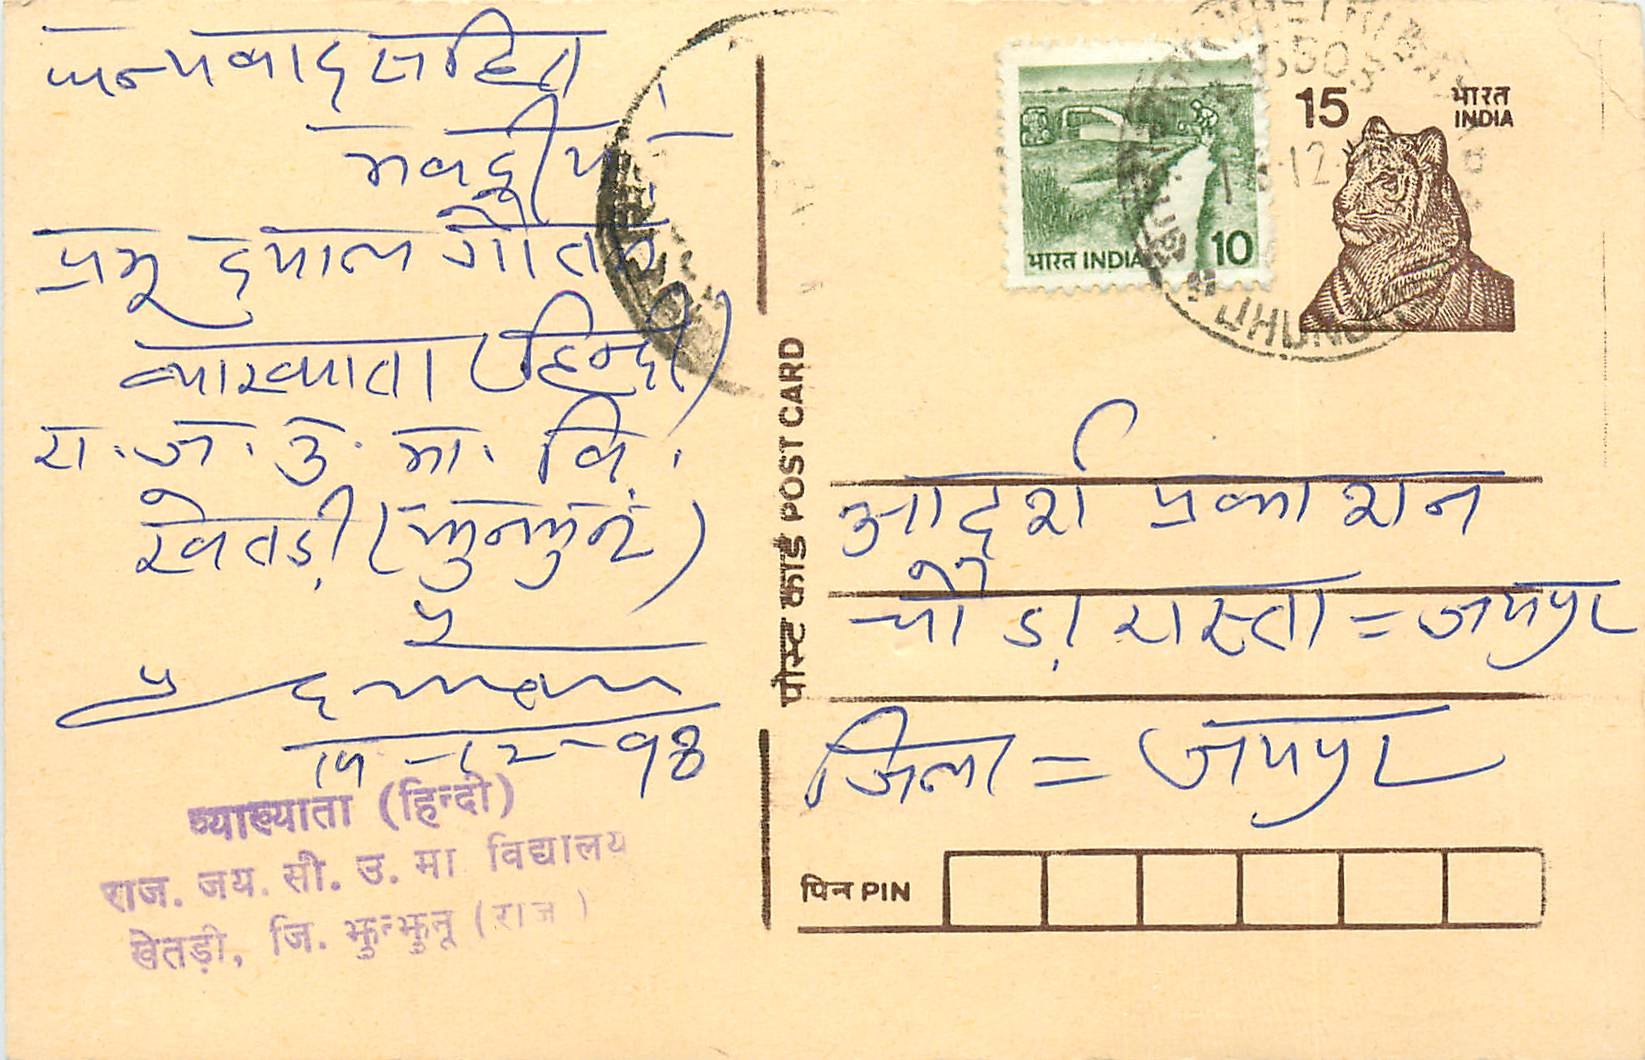 धन्यवाद सहित
भवदीय
प्रभु दयाल गौतम
व्याख्याता (हिन्दी)
रा. ज. उ. मा. वि.
खेतड़ी (झुन्झुनूं)
व्याख्याता (हिन्दी)
राज. जय. सी. उ. मा विद्यालय
खेतड़ी, जि. झुन्झुनू (राज)
पोस्ट कार्ड POST CARD
भारत INDIA 10
15
भारत
INDIA
JHUNJHUNU
आदर्श प्रकाशन
चौड़ा रास्ता = जयपुर
जिला = जयपुर
पिन PIN